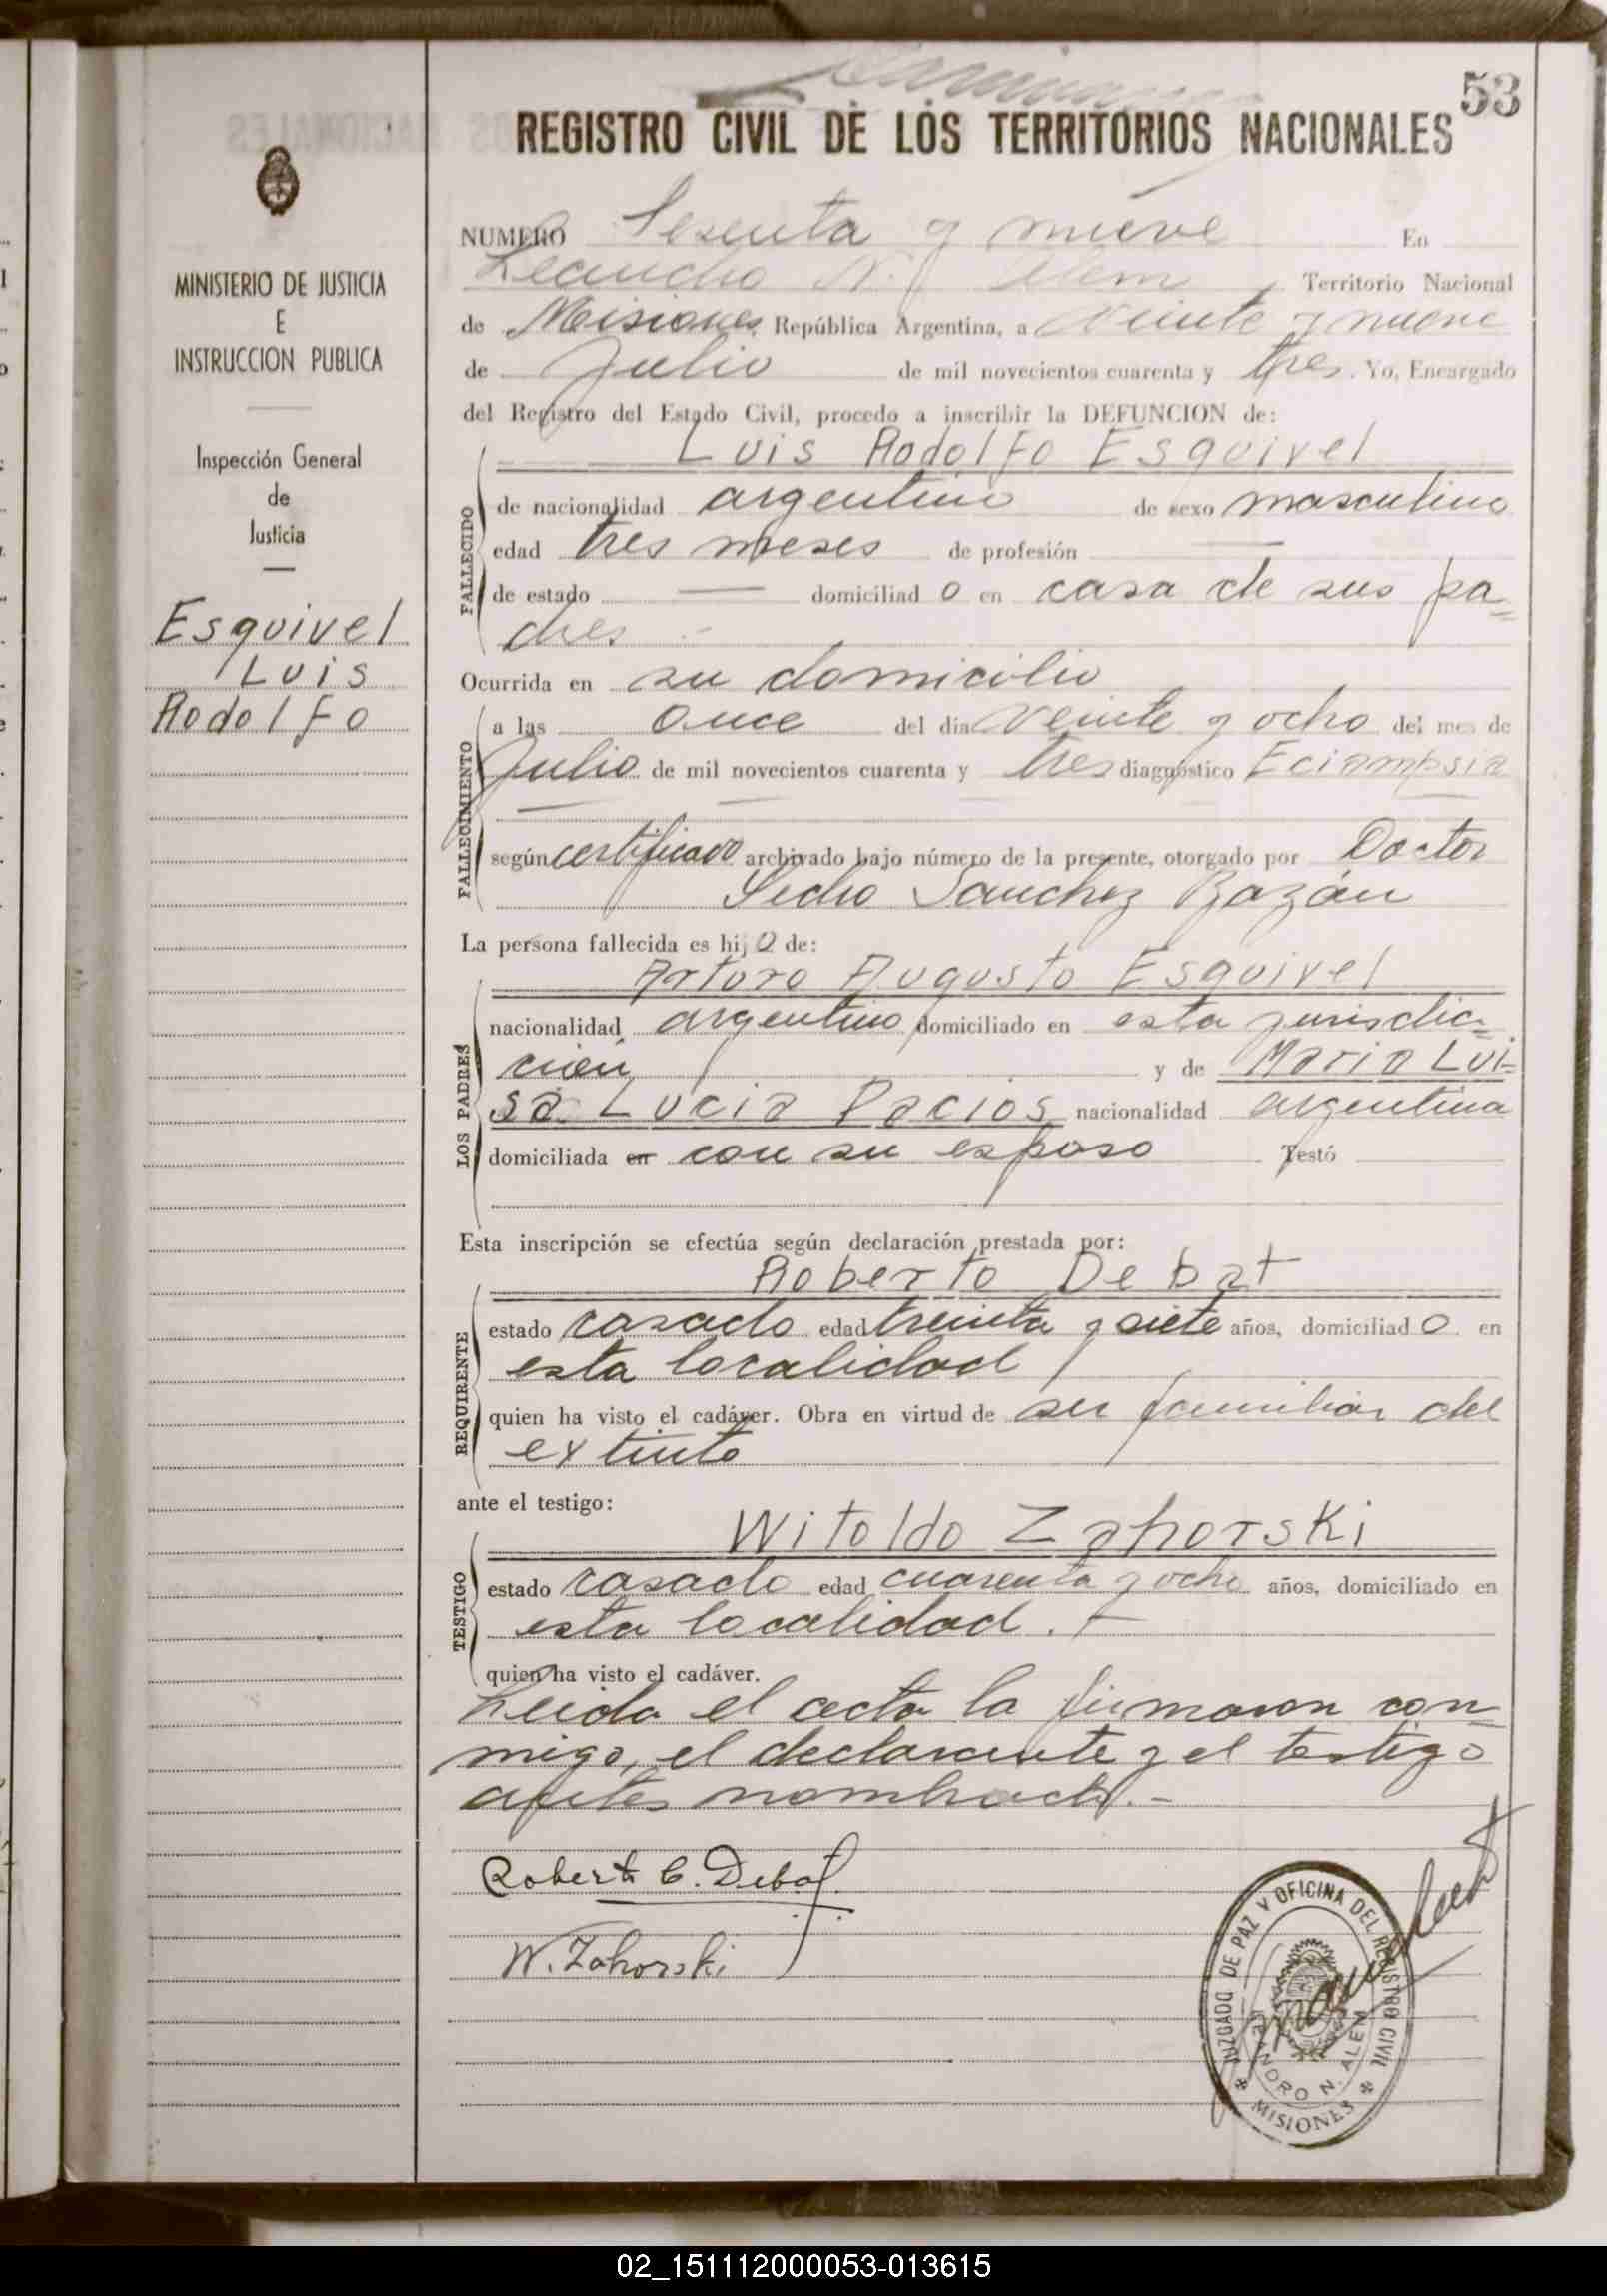 53
REGISTRO CIVIL DE LOS TERRITORIOS NACIONALES
MINISTERIO DE JUSTICIA
E
INSTRUCCION PUBLICA
Inspección General
de
Justicia
Esquivel
Luis
Rodolfo
NUMERO Sesenta y nueve En
Leandro N. Alem, Territorio Nacional
de Misiones, República Argentina, a veinte y nueve
de Julio de mil novecientos cuarenta y tres. Yo, Encargado
del Registro del Estado Civil, procedo a inscribir la DEFUNCION de:
Luis Rodolfo Esquivel
FALLECIDO
de nacionalidad argentino de sexo masculino
edad tres meses de profesión —
de estado — domiciliado en casa de sus pa=
dres .-
Ocurrida en su domicilio
FALLECIMIENTO
a las once del día veinte y ocho del mes de
Julio de mil novecientos cuarenta y tres diagnóstico Eclampsia
según certificado archivado bajo número de la presente, otorgado por Doctor
Pedro Sanchez Bazán
La persona fallecida es hijo de:
Arturo Augusto Esquivel
LOS PADRES
nacionalidad argentino domiciliado en esta jurisdic=
ción y de Maria Lui=
sa Lucia Pacios nacionalidad argentina
domiciliada en con su esposo Testó
Esta inscripción se efectúa según declaración prestada por:
Roberto Debat
REQUIRENTE
estado casado edad treinta y siete años, domiciliado en
esta localidad
quien ha visto el cadáver. Obra en virtud de ser familiar del
extinto
ante el testigo:
Witoldo Zahorski
TESTIGO
estado casado edad cuarenta y ocho años, domiciliado en
esta localidad . —
quien ha visto el cadáver.
Leida el acta la firmaron con=
migo, el declarante y el testigo
antes nombrado.-
Roberto C. Debat
W. Zahorski
JUZGADO DE PAZ Y OFICINA DEL REGISTRO CIVIL
LEANDRO N. ALEM
MISIONES
02_151112000053-013615